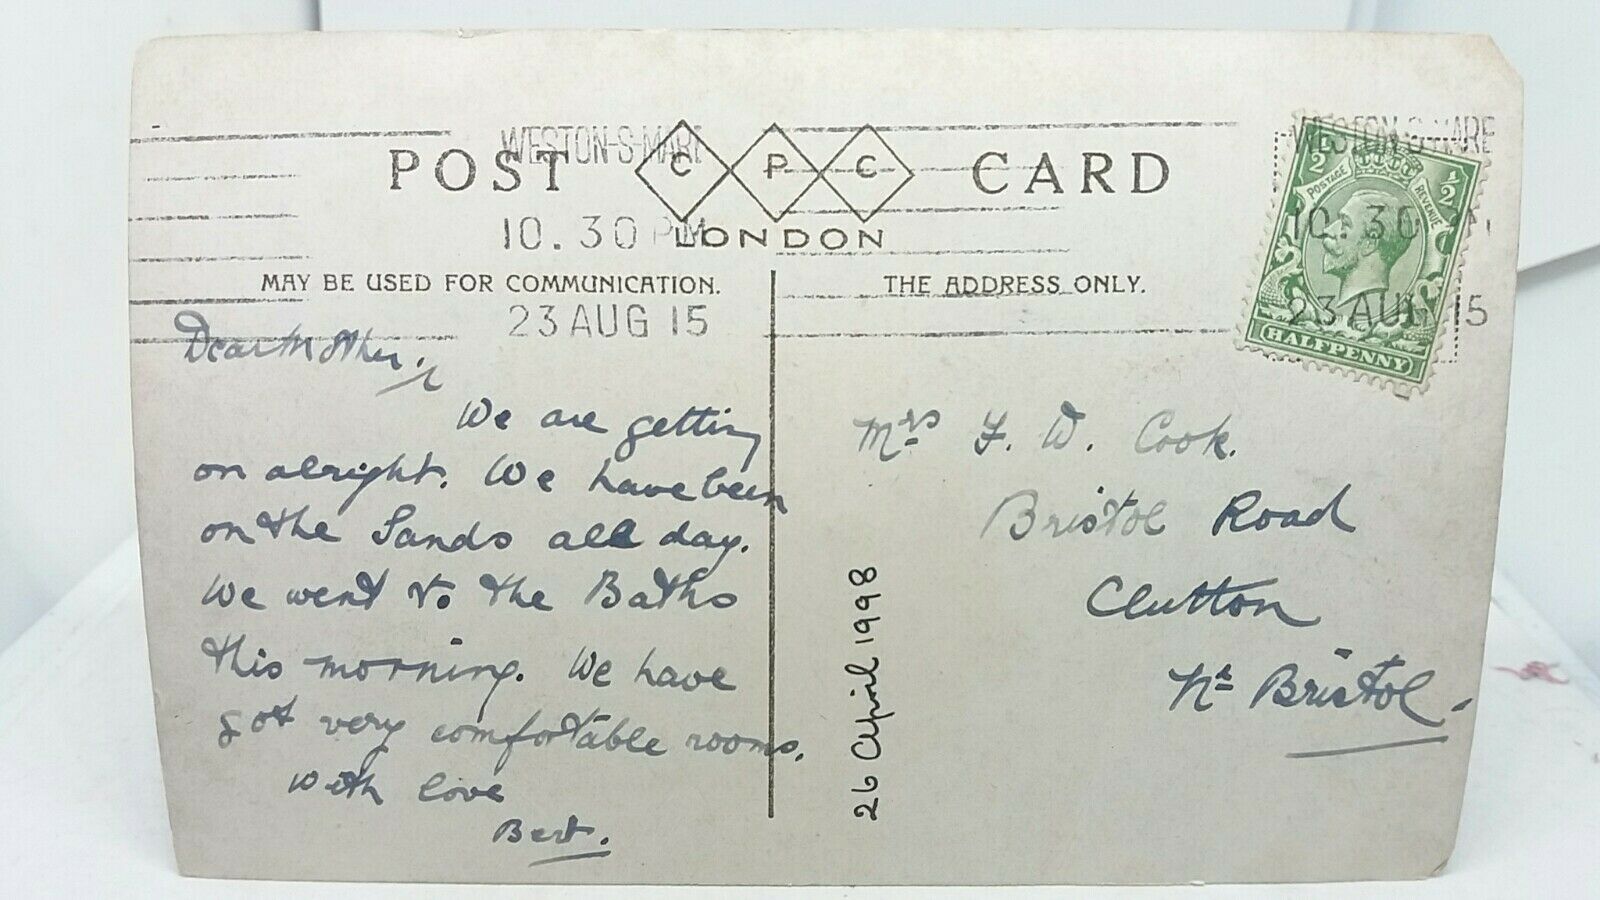 WESTON-S-MARE
POST C P C CARD
10.30 PM
LONDON
MAY BE USED FOR COMMUNICATION.
THE ADDRESS ONLY.
23 AUG 15
Dear Mother,
We are getting
on alright. We have been
on the Sands all day.
We went to the Baths
this morning. We have
got very comfortable rooms.
With love
Bert.
WESTON-S-MARE
1/2 POSTAGE REVENUE 1/2
10.30 PM
23 AUG 15
HALFPENNY
Mrs F. W. Cook.
Bristol Road
Clutton
Nr Bristol.
26 April 1998